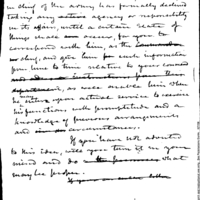 in chief of the army has formally declined
taking any active agency or responsibility
in it again, until a certain state of
things shall occur, for you to
correspond with him, as the commander
in chief, and give him such information
from time to time relative to your command
department, as will enable him when
he may enter upon actual service to resume
his functions with promptitude and a
knowledge of previous arrangements
and circumstances.
If you have not adverted
to this idea, will you turn it in your
mind and do what
may be proper.